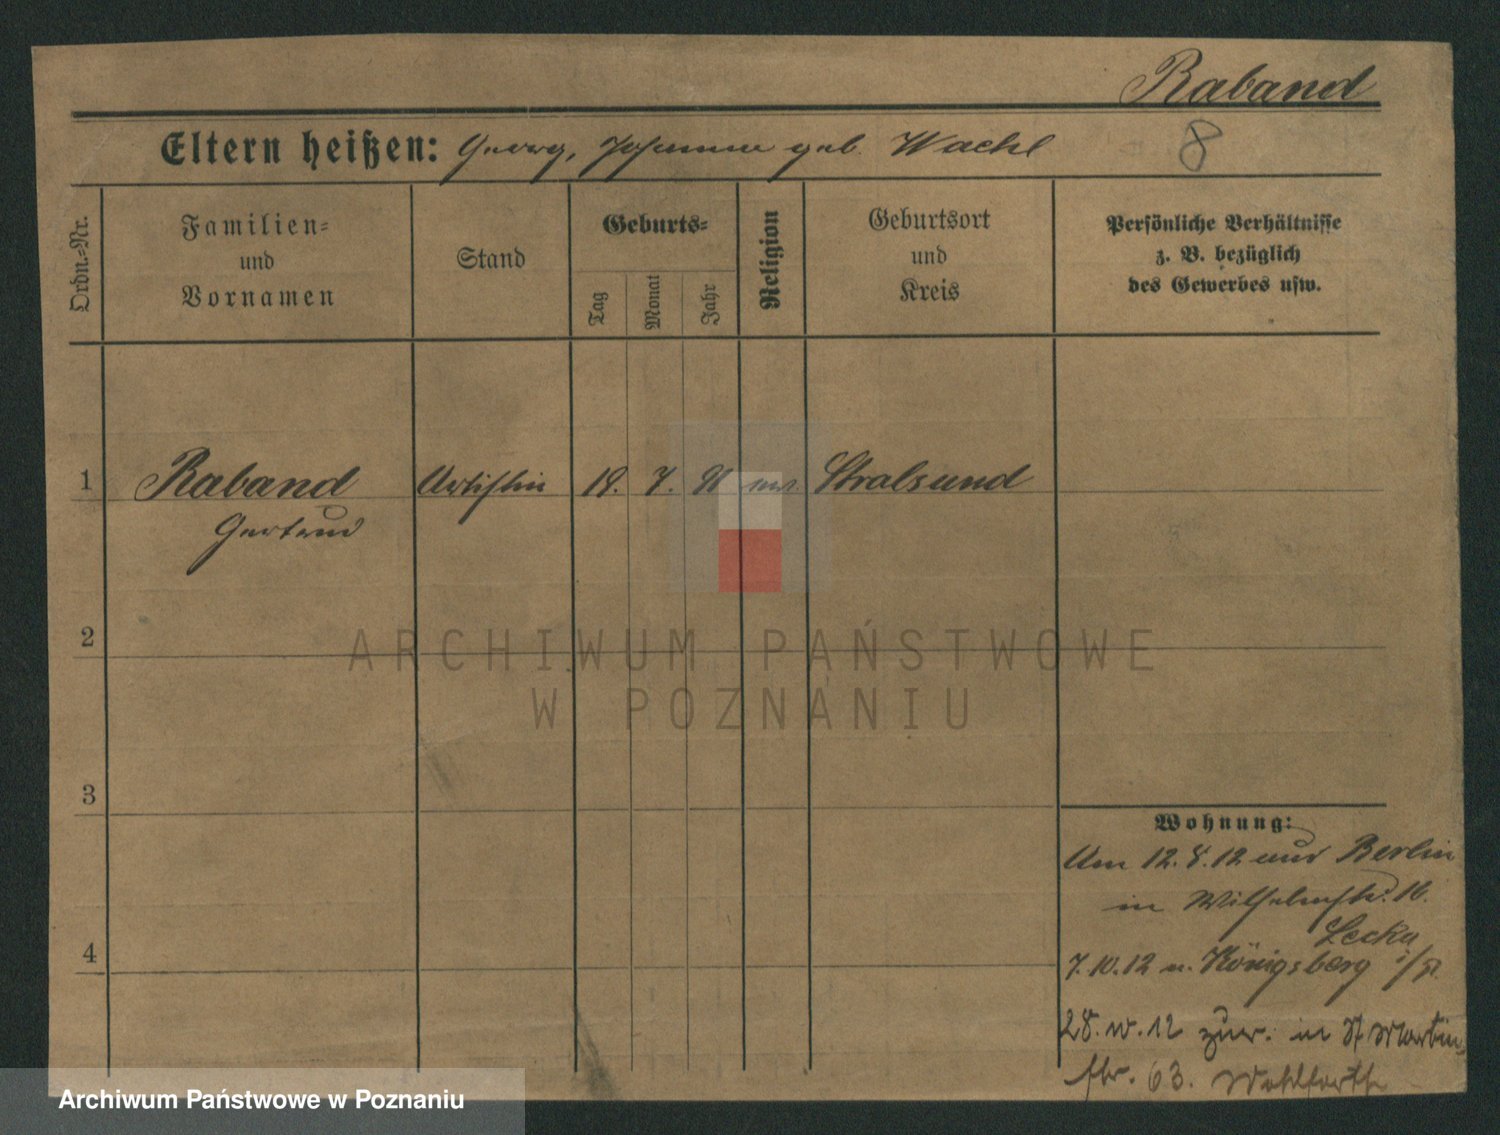 Raband
Eltern heißen: Georg, Johanna geb. Wachl
8
Ordn.-Nr.
Familien-
und
Vornamen
Stand
Geburts-
Tag
Monat
Jahr
Religion
Geburtsort
und
Kreis
Persönliche Verhältnisse
z. B. bezüglich
des Gewerbes usw.
1 Raband Artistin 18. 7. ev. Stralsund
Gertrud
2
3
4
Wohnung:
Am 12.8.12 aus Berlin
in Wilhelmstr. 16.
7.10.12 n. Königsberg
28.10.12 zur. in St Martin
str. 63. Wohlfarth
ARCHIWUM PAŃSTWOWE
W POZNANIU
Archiwum Państwowe w Poznaniu